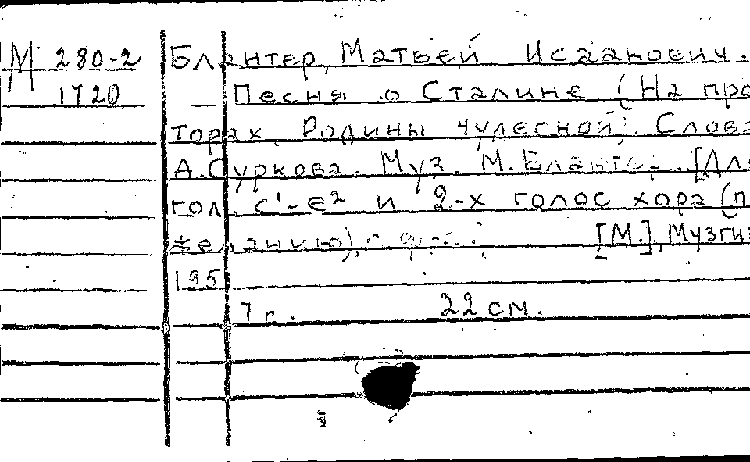 М 280-2
1720
Блантер, Матвей Исаакович.
— Песня о Сталине (На про
торах Родины чудесной). Слова
А. Суркова. Муз. М. Блантер. [Для
гол. c¹-e² и 2-х голос хора (п
желанию), [М.], Музгиз
195
7 г. 22 см.